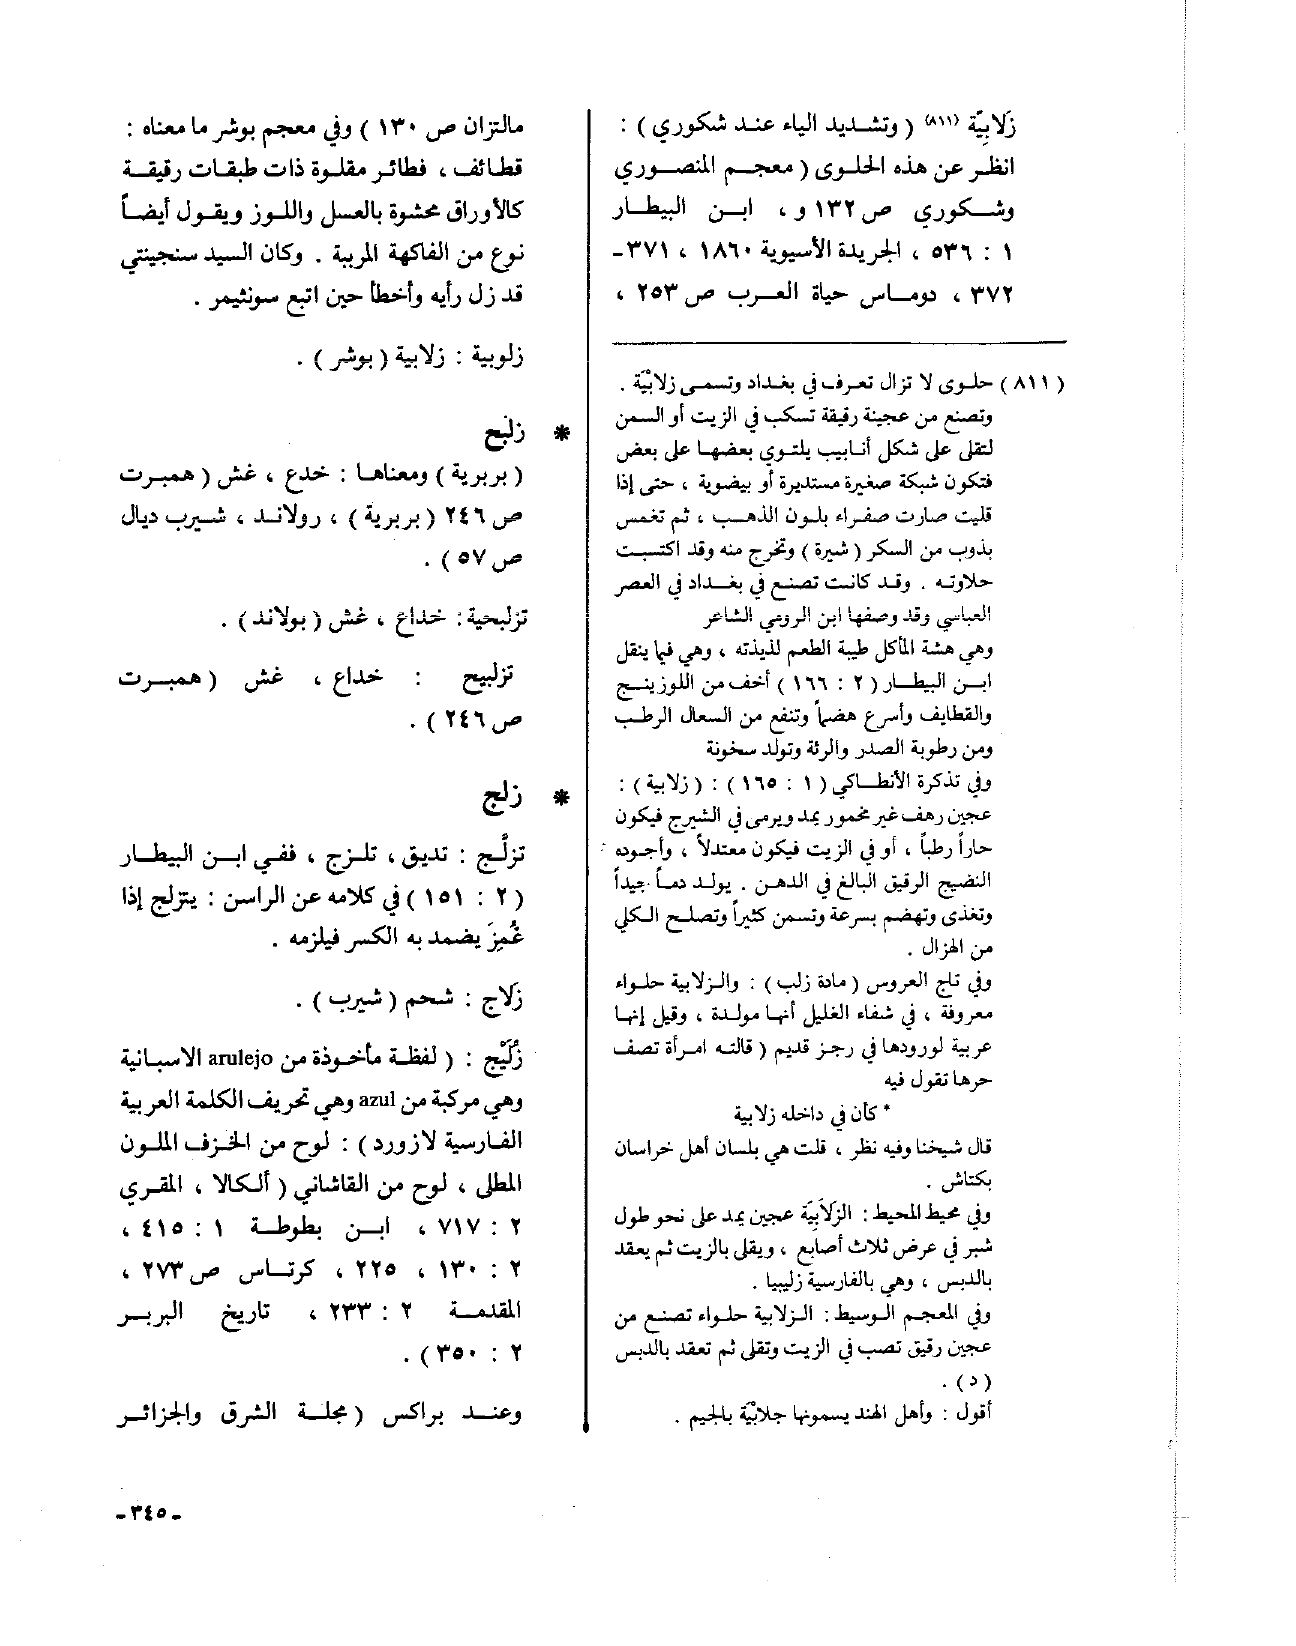 زلابِيّة (٨١١) ( وتشديد الياء عند شكوري ) :
انظر عن هذه الحلوى ( معجم المنصوري
وشكوري ص ١٣٢ و ، ابن البيطار
١ : ٥٣٦ ، الجريدة الأسيوية ١٨٦٠ ، ٣٧١-
٣٧٢ ، دوماس حياة العرب ص ٢٥٣ ،
( ٨١١ ) حلوى لا تزال تعرف في بغداد وتسمى زلابيّة .
وتصنع من عجينة رقيقة تسكب في الزيت أو السمن
لتقل على شكل أنابيب يلتوي بعضها على بعض
فتكون شبكة صغيرة مستديرة أو بيضوية ، حتى إذا
قليت صارت صفراء بلون الذهب ، ثم تغمس
بذوب من السكر ( شيرة ) وتخرج منه وقد اكتسبت
حلاوته . وقد كانت تصنع في بغداد في العصر
العباسي وقد وصفها ابن الرومي الشاعر
وهي هشة المأكل طيبة الطعم لذيذته ، وهي فيما ينقل
ابن البيطار ( ٢ : ١٦٦ ) أخف من اللوزينج
والقطايف وأسرع هضماً وتنفع من السعال الرطب
ومن رطوبة الصدر والرئة وتولد سخونة
وفي تذكرة الأنطاكي ( ١ : ١٦٥ ) : ( زلابية ) :
عجين رهف غير مخمور يمد ويرمى في الشيرج فيكون
حاراً رطباً ، أو في الزيت فيكون معتدلاً ، وأجوده
النضيج الرقيق البالغ في الدهن . يولد دماً جيداً
وتغذى وتهضم بسرعة وتسمن كثيراً وتصلح الكلي
من الهزال .
وفي تاج العروس ( مادة زلب ) : والزلابية حلواء
معروفة ، في شفاء الغليل أنها مولدة ، وقيل إنها
عربية لورودها في رجز قديم ( قالته امرأة تصف
حرها تقول فيه
* كأن في داخله زلابية
قال شيخنا وفيه نظر ، قلت هي بلسان أهل خراسان
بكتاش .
وفي محيط المحيط : الزلاَبِيَة عجين يمد على نحو طول
شبر في عرض ثلاث أصابع ، ويقلى بالزيت ثم يعقد
بالدبس ، وهي بالفارسية زليبيا .
وفي المعجم الوسيط : الزلابية حلواء تصنع من
عجين رقيق تصب في الزيت وتقلى ثم تعقد بالدبس
( د ) .
أقول : وأهل الهند يسمونها جلابيّة بالجيم .
مالتزان ص ١٣٠ ) وفي معجم بوشر ما معناه :
قطائف ، فطائر مقلوة ذات طبقات رقيقة
كالأوراق محشوة بالعسل واللوز ويقول أيضاً
نوع من الفاكهة المربية . وكان السيد سنجينتي
قد زل رأيه وأخطأ حين اتبع سونثيمر .
زلوبية : زلابية ( بوشر ) .
* زلبج
( بربرية ) ومعناها : خدع ، غش ( همبرت
ص ٢٤٦ ( بربرية ) ، رولاند ، شيرب ديال
ص ٥٧ ) .
تزلبحية : خداع ، غش ( بولاند ) .
تزلبيح : خداع ، غش ( همبرت
ص ٢٤٦ ) .
* زلج
تزلَّج : تديق ، تلزج ، ففي ابن البيطار
( ٢ : ١٥١ ) في كلامه عن الراسن : يتزلج إذا
غُمِزَ يضمد به الكسر فيلزمه .
زلاج : شحم ( شيرب ) .
زُلَّيج : ( لفظة مأخوذة من arulejo الاسبانية
وهي مركبة من azul وهي تحريف الكلمة العربية
الفارسية لازورد ) : لوح من الخزف الملون
المطلي ، لوح من القاشاني ( ألكالا ، المقري
٢ : ٧١٧ ، ابن بطوطة ١ : ٤١٥ ،
٢ : ١٣٠ ، ٢٢٥ ، كرتاس ص ٢٧٣ ،
المقدمة ٢ : ٢٣٣ ، تاريخ البربر
٢ : ٣٥٠ ) .
وعند براكس ( مجلة الشرق والجزائر
- ٣٤٥ -